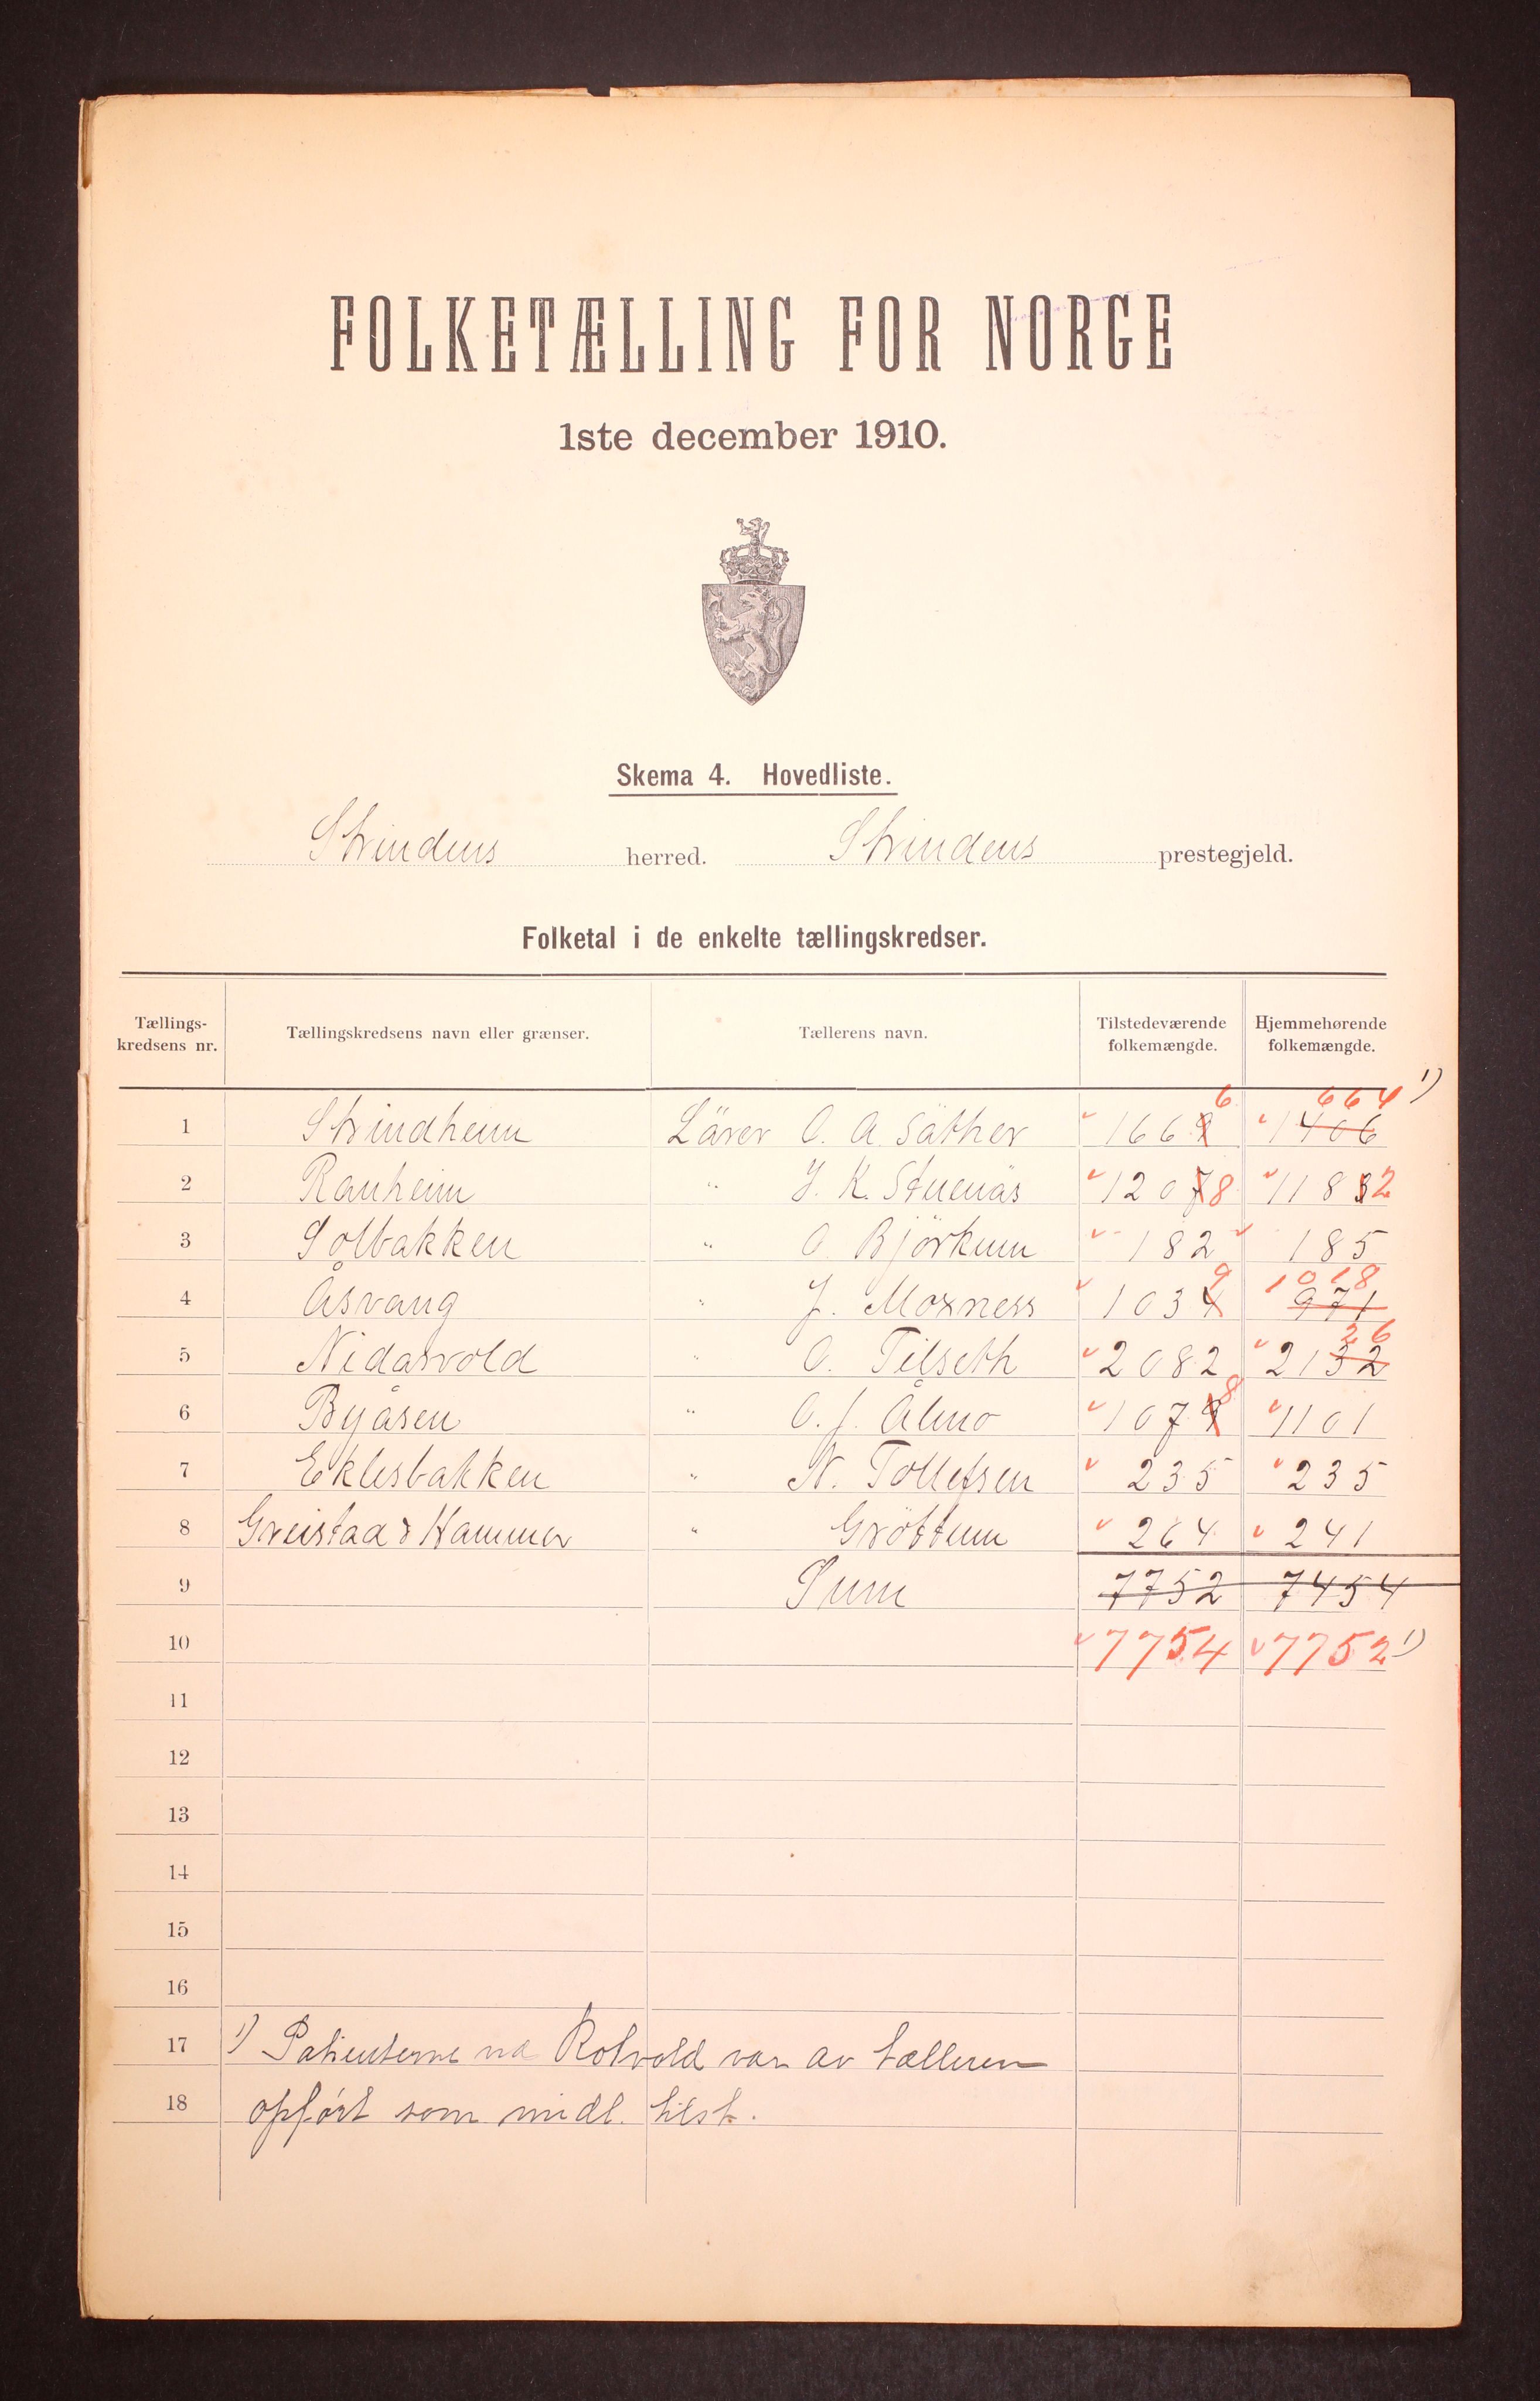 FOLKETÆLLING FOR NORGE
1ste december 1910.
Skema 4. Hovedliste.
Strindens herred. Strindens prestegjeld.
Folketal i de enkelte tællingskredser.
Tællings-kredsens nr. Tællingskredsens navn eller grænser. Tællerens navn. Tilstedeværende folkemængde. Hjemmehørende folkemængde.
6 664 1)
1 Strindheim Lärer O. A. Säther 1669 1406
2 Ranheim " J. K. Stuenäs 12078 11832
3 Solbakken " O. Björkum 182 185
9 1018
4 Åsvang " J. Moxness 1034 971
26
5 Nidarvold " O. Tilseth 2082 2132
8
6 Byåsen " O. J. Ålmo 1079 1101
7 Eklesbakken " N. Tollefsen 235 235
8 Greistad & Hammer " Gröttum 264 241
9 Sum 7752 7454
10 7754 7752 1)
11
12
13
14
15
16
17 1) Patienterne va Rotvold var av tælleren
18 opført som midl. tilst.